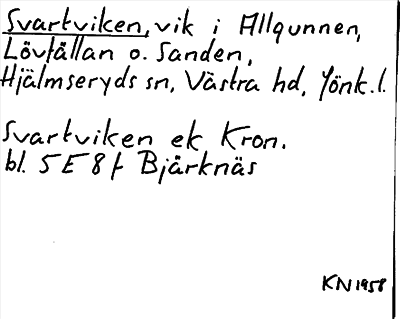 Svartviken, vik i Allgunnen,
Lövfållan o. Sanden,
Hjälmseryds sn, Västra hd, Jönk. l.
Svartviken ek Kron.
bl. 5E 8f Bjärknäs
KN 1958